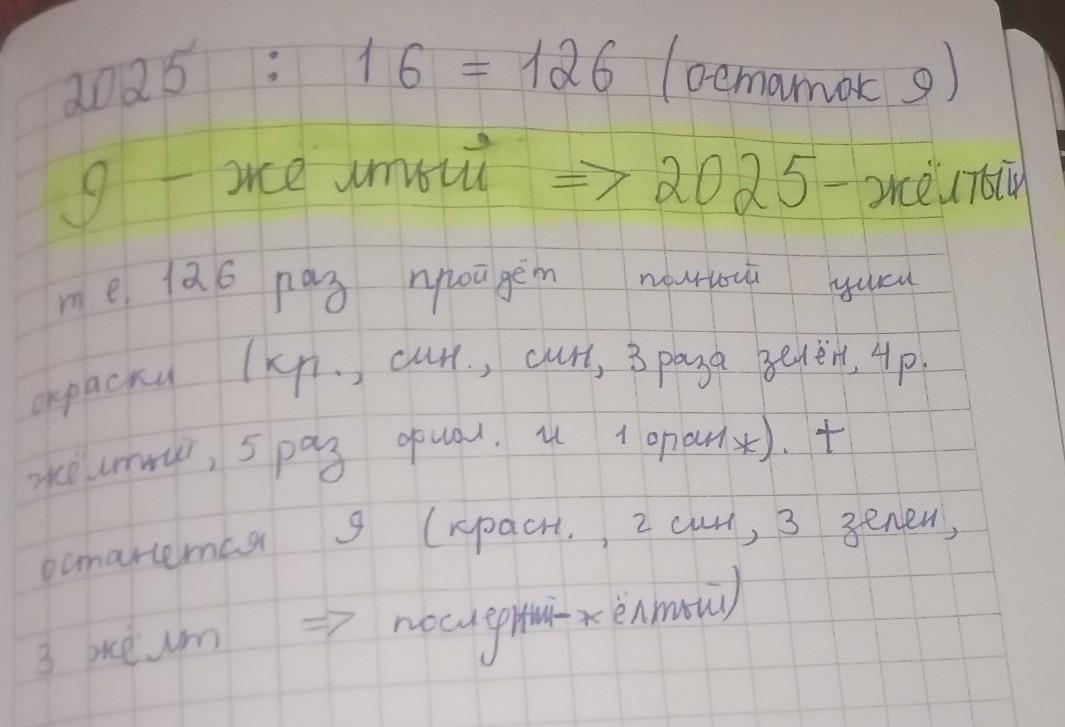 2025 : 16 = 126 (остаток 9)
9 - жёлтый => 2025 - жёлтый
т.е. 126 раз пройдёт полный цикл
окраски (кр., син., син, 3 раза зелён, 4 р.
жёлтый, 5 раз фиол. и 1 оранж). +
останется 9 (красн., 2 син, 3 зелен,
3 жёлт => последний-жёлтый)